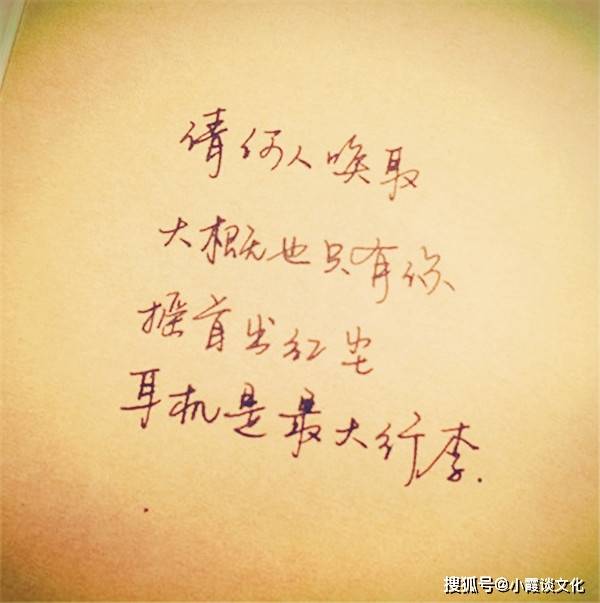 请何人唤取
大概也只有你
摇首出红尘
耳机是最大行李.
搜狐号@小霞谈文化